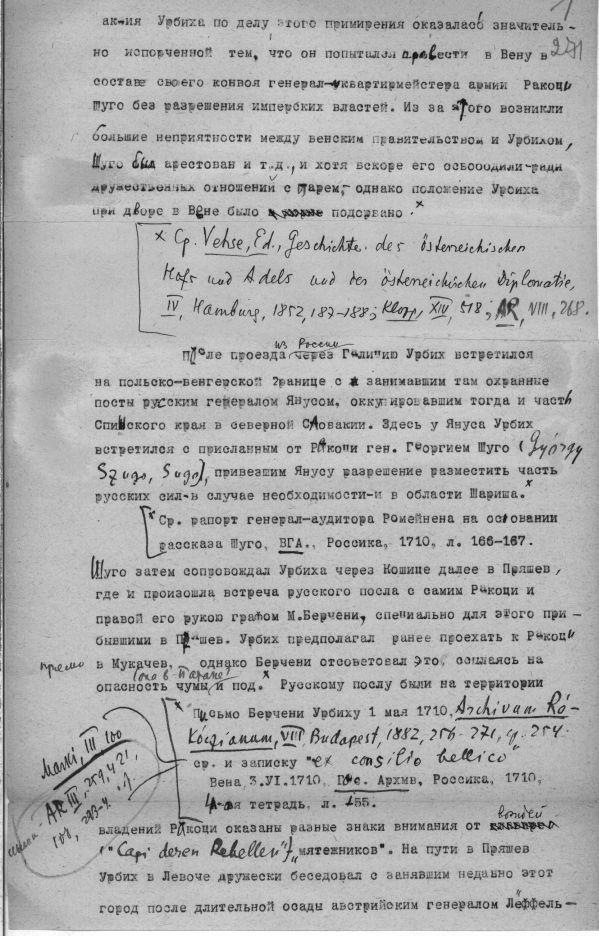 271
ак-ия Урбиха по делу этого примирения оказалась значитель-
но испорченной тем, что он попытался провести в Вену в
составе своего конвоя генерал-квартирмейстера армии Ракоци
Шуго без разрешения имперских властей. Из за этого возникли
большие неприятности между венским правительством и Урбихом,
Шуго был арестован и т.д., и хотя вскоре его освободили-ради
дружественных отношений с царем,-однако положение Урбиха
при дворе в Вене было подорвано.ˣ
× Ср. Vehse, Ed., Geschichte des österreichischen
Hofs und Adels und der österreichischen Diplomatie,
IV, Hamburg, 1852, 187-188; Klopp, XIV, 518; AR, VIII, 268.
из России
После проезда через Галицию Урбих встретился
на польско-венгерской границе с занимавшим там охранные
посты русским генералом Янусом, оккупировавшим тогда и часть
Спишского края в северной Словакии. Здесь у Януса Урбих
встретился с присланным от Ракоци ген. Георгием Шуго (György
Szugo, Sugo), привезшим Янусу разрешение разместить часть
русских сил-в случае необходимости-и в области Шариша.ˣ
× Ср. рапорт генерал-аудитора Ромейнена на основании
рассказа Шуго, ВГА., Россика, 1710, л. 166-167.
Шуго затем сопровождал Урбиха через Кошице далее в Пряшев,
где и произошла встреча русского посла с самим Ракоци и
правой его рукою графом М.Берчени, специально для этого при-
бывшими в Пряшев. Урбих предполагал ранее проехать к Ракоци
прямо
в Мукачев, однако Берчени отсоветовал это, ссылаясь на
опасность чумы и под.ˣ Русскому послу были на территории
× Письмо Берчени Урбиху 1 мая 1710, Archivum Rá-
kóczianum, VIII, Budapest, 1882, 256-271, ср. 254.
ср. и записку "ex consilio bellico"
Вена, 3.VI.1710, Гос. Архив, Россика, 1710,
4-ая тетрадь, л. 155.
Marki, III 100
AR III, 259, 421,
владений Ракоци оказаны разные знаки внимания от вождей
("Capi deren Rebellen") "мятежников". На пути в Пряшев
Урбих в Левоче дружески беседовал с занявшим недавно этот
город после длительной осады австрийским генералом Леффель-